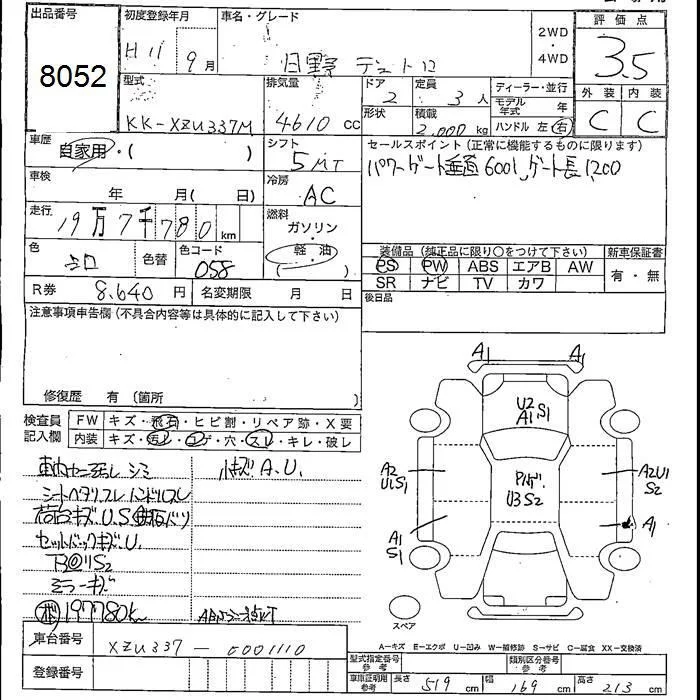 出品番号 初度登録年月 車名・グレード 評価点
8052 H11 9月 日野 デュトロ 2WD・4WD 3.5
外装 内装
C C
型式 排気量 ドア 定員 ディーラー・並行
KK-XZU337M 4610 cc 2 3人 モデル年式 年
形状 積載 2,000 kg ハンドル 左 右
車歴 自家用・( ) シフト 5MT
セールスポイント(正常に機能するものに限ります)
パワーゲート垂直600kg,ゲート長1,200
車検 年 月( 日) 冷房 AC
走行 19万7千780km 燃料 ガソリン・軽・油 ( )
色 シロ 色替 色コード 058
装備品(純正品に限り〇をつけて下さい) 新車保証書
PS PW ABS エアB AW 有・無
SR ナビ TV カワ
R券 8,640円 名変期限 月 日
後日品
注意事項申告欄(不具合内容等は具体的に記入して下さい)
修復歴 有(箇所
検査員記入欄 FW キズ・飛石・ヒビ割・リペア跡・X要
内装 キズ・汚レ・コゲ・穴・スレ・キレ・破レ
車内ヤニ汚レ シミ 小キズ.A.U.
シートヘタリ.スレ ハンドルスレ
荷台キズ.U.S.鉄板バリ
セットバックキズ.U.
ミラーキズ
197780km
A1 A1
U2 A1 S1
A2 U1 S1
A2U1 S2
U3 S2
A1 S1
A1
スペア
A-キズ E-エクボ U-凹み W-補修跡 S-サビ C-腐食 XX-交換済
車台番号 XZU337-0001110
型式指定番号 参考 類別区分番号 参考
登録番号
車庫証明用 参考 長さ 519 cm 幅 169 cm 高さ 213 cm